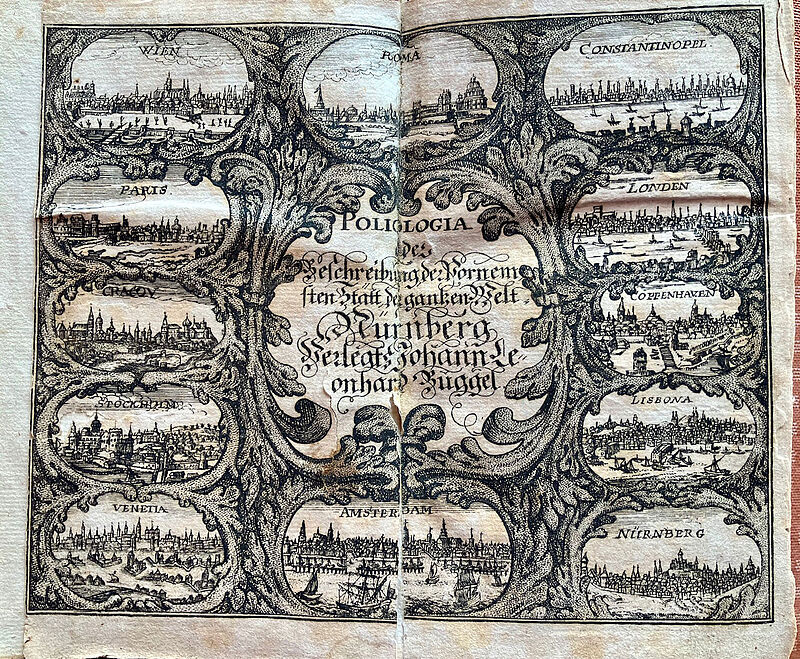 WIEN
ROMA
CONSTANTINOPEL
PARIS.
LONDEN
CRACOV
COPPENHAVEN
STOCKHOLM
LISBONA
VENETIA
AMSTERDAM
NÜRNBERG
POLIOLOGIA
Oder
Beschreibung der Vornem-
sten Stätt der gantzen Welt.
Nürnberg
Verlegts Johann Le-
onhard Buggel